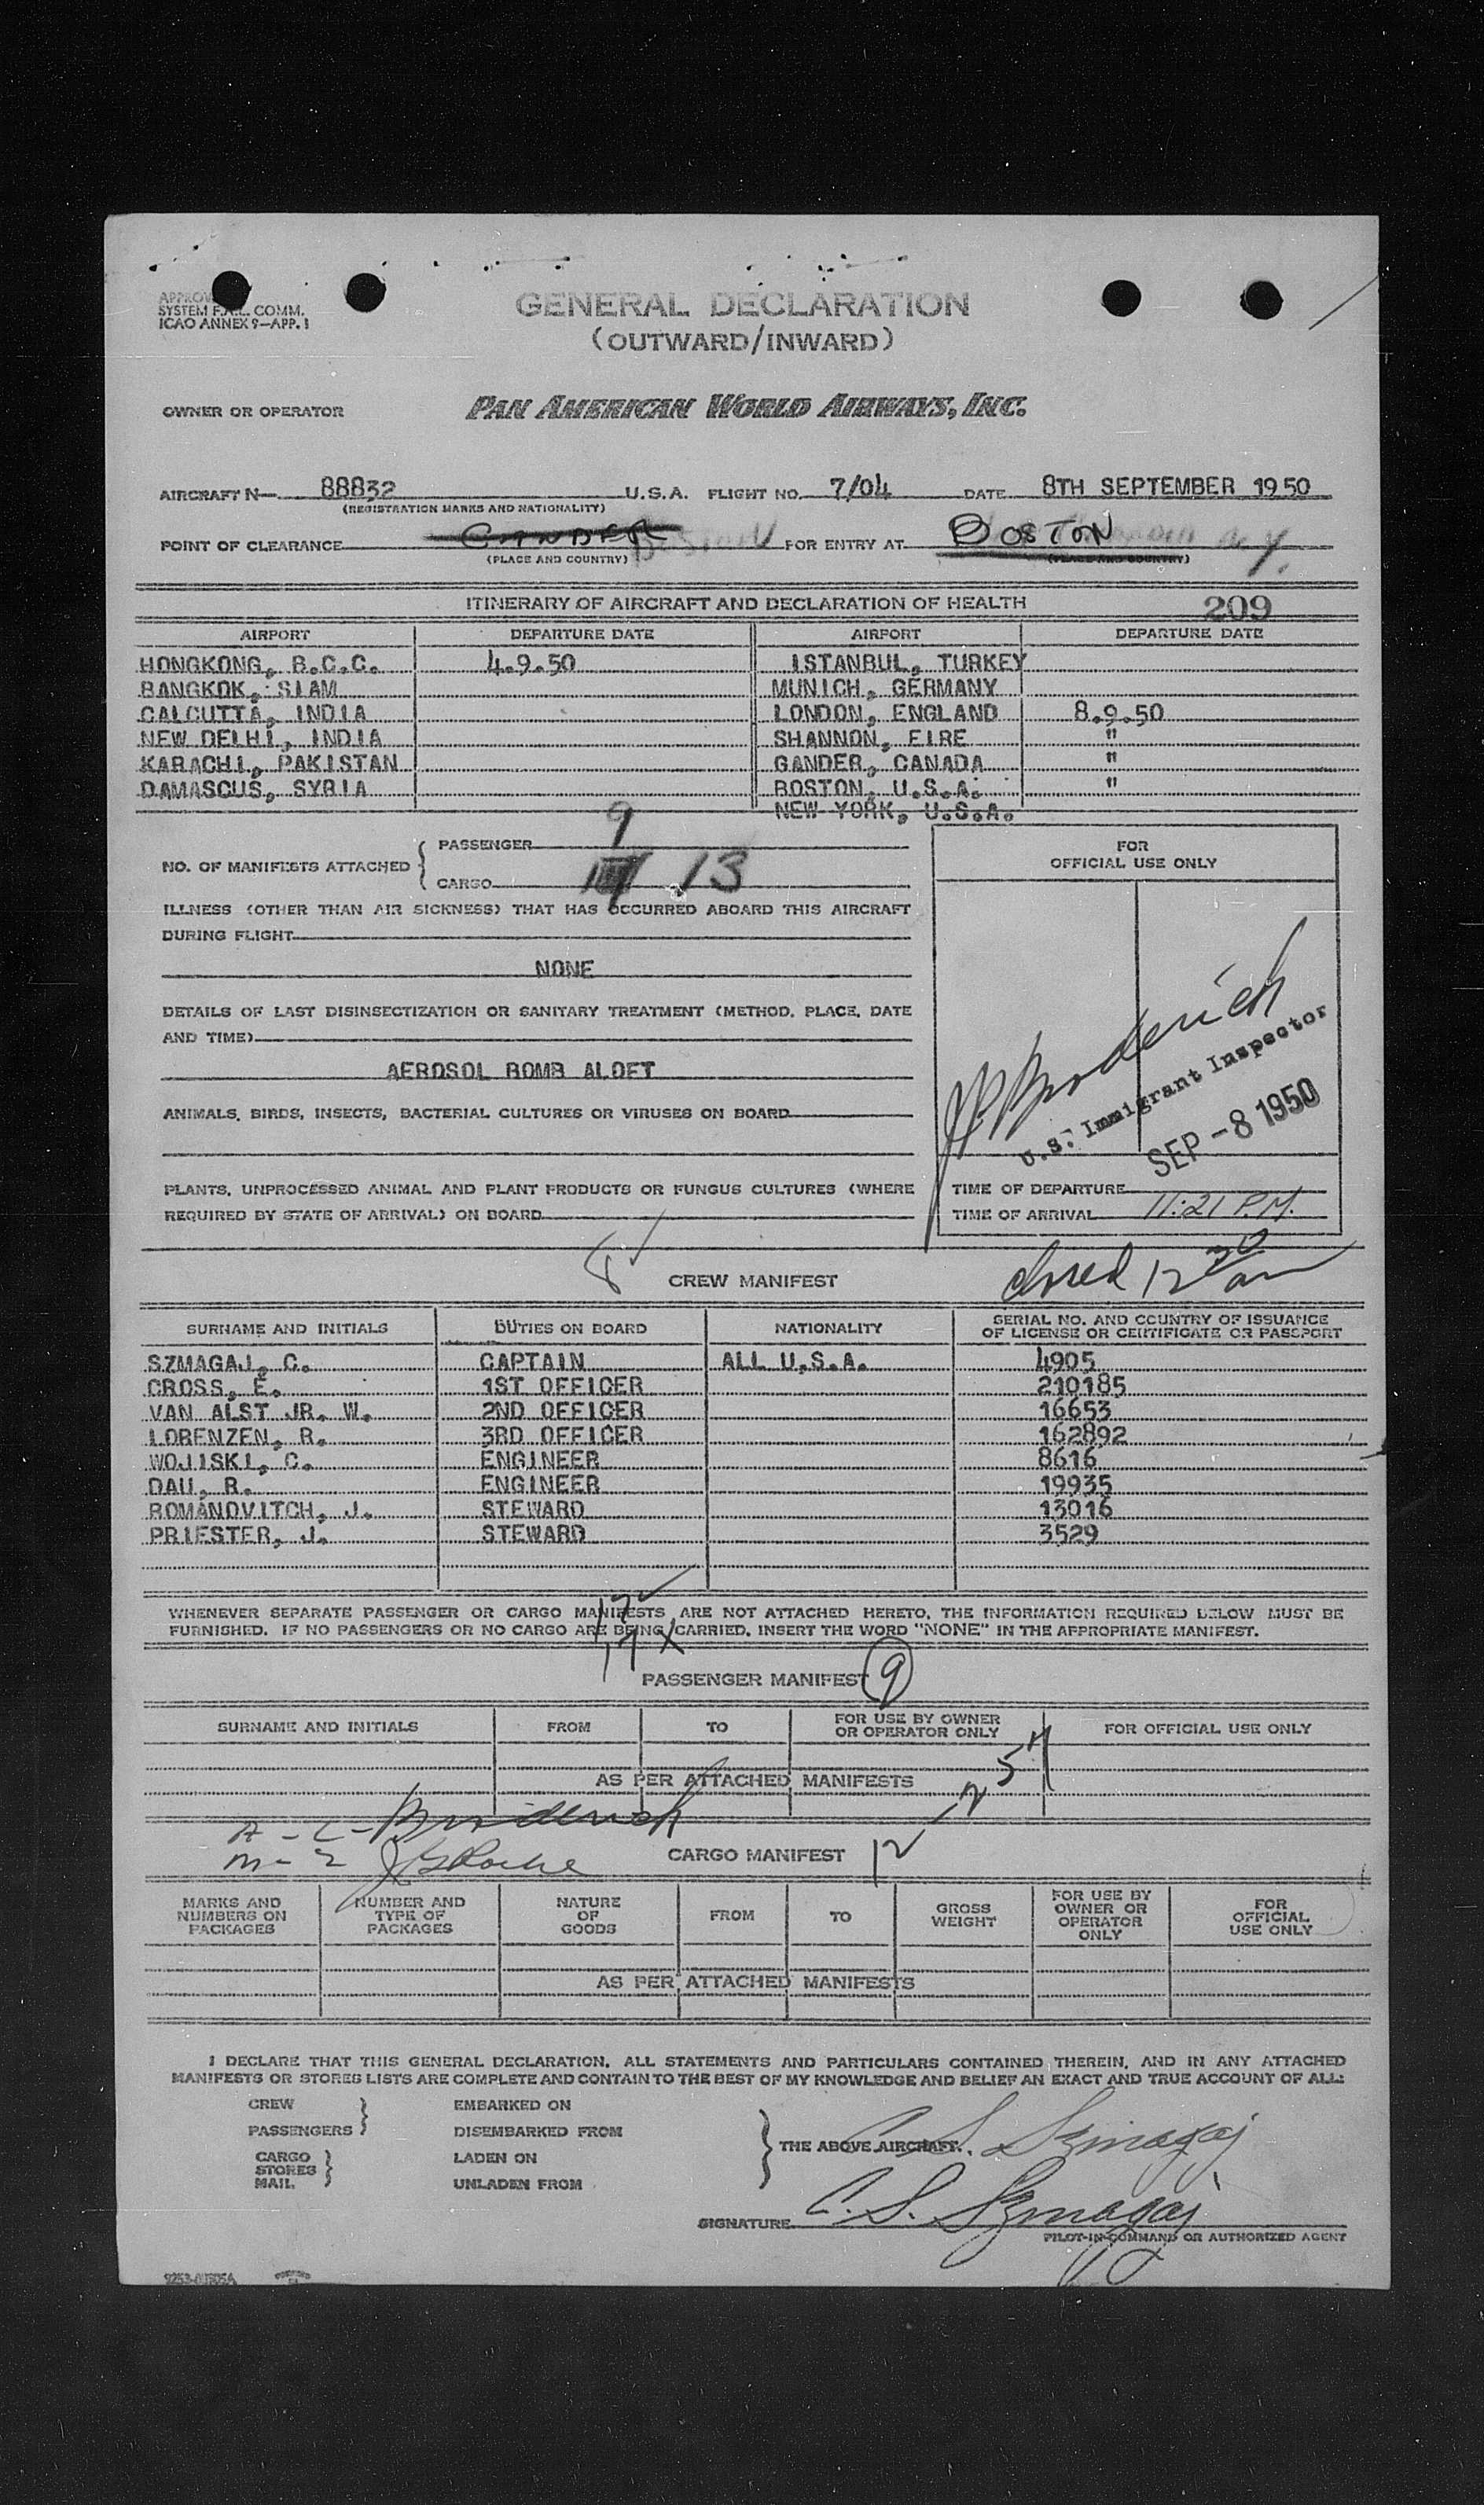 APPROV
SYSTEM F.A.L. COMM.
ICAO ANNEX 9-APP. 1
GENERAL DECLARATION
(OUTWARD/INWARD)
OWNER OR OPERATOR PAN AMERICAN WORLD AIRWAYS, INC.
AIRCRAFT N- 88832 U.S.A. FLIGHT NO. 7/04 DATE 8TH SEPTEMBER 1950
(REGISTRATION MARKS AND NATIONALITY)
POINT OF CLEARANCE GANDER BOSTON FOR ENTRY AT BOSTON
(PLACE AND COUNTRY) (PLACE AND COUNTRY)
ITINERARY OF AIRCRAFT AND DECLARATION OF HEALTH 209
AIRPORT DEPARTURE DATE AIRPORT DEPARTURE DATE
HONGKONG, B.C.C. 4.9.50 ISTANBUL, TURKEY
BANGKOK, SIAM MUNICH, GERMANY
CALCUTTA, INDIA LONDON, ENGLAND 8.9.50
NEW DELHI, INDIA SHANNON, EIRE "
KARACHI, PAKISTAN GANDER, CANADA "
DAMASCUS, SYRIA BOSTON, U.S.A. "
NEW YORK, U.S.A.
NO. OF MANIFESTS ATTACHED
PASSENGER 9
CARGO 13
FOR
OFFICIAL USE ONLY
ILLNESS (OTHER THAN AIR SICKNESS) THAT HAS OCCURRED ABOARD THIS AIRCRAFT
DURING FLIGHT
NONE
DETAILS OF LAST DISINSECTIZATION OR SANITARY TREATMENT (METHOD, PLACE, DATE
AND TIME)
AEROSOL BOMB ALOFT
ANIMALS, BIRDS, INSECTS, BACTERIAL CULTURES OR VIRUSES ON BOARD
PLANTS, UNPROCESSED ANIMAL AND PLANT PRODUCTS OR FUNGUS CULTURES (WHERE
REQUIRED BY STATE OF ARRIVAL) ON BOARD
Broderick
U.S. Immigrant Inspector
SEP -8 1950
TIME OF DEPARTURE
TIME OF ARRIVAL 11:21 P.M.
closed 12 30 am
8
CREW MANIFEST
SURNAME AND INITIALS DUTIES ON BOARD NATIONALITY SERIAL NO. AND COUNTRY OF ISSUANCE
OF LICENSE OR CERTIFICATE OR PASSPORT
SZMAGAJ, C. CAPTAIN ALL U.S.A. 4905
CROSS, E. 1ST OFFICER 210185
VAN ALST JR. W. 2ND OFFICER 16653
LORENZEN, R. 3RD OFFICER 162892
WOJISKI, C. ENGINEER 8616
DAU, R. ENGINEER 19935
ROMANOVITCH, J. STEWARD 13016
PRIESTER, J. STEWARD 3529
WHENEVER SEPARATE PASSENGER OR CARGO MANIFESTS ARE NOT ATTACHED HERETO, THE INFORMATION REQUIRED BELOW MUST BE
FURNISHED. IF NO PASSENGERS OR NO CARGO ARE BEING CARRIED, INSERT THE WORD "NONE" IN THE APPROPRIATE MANIFEST.
17
PASSENGER MANIFEST 9
SURNAME AND INITIALS FROM TO FOR USE BY OWNER
OR OPERATOR ONLY FOR OFFICIAL USE ONLY
AS PER ATTACHED MANIFESTS
Broderick
CARGO MANIFEST 12
MARKS AND
NUMBERS ON
PACKAGES
NUMBER AND
TYPE OF
PACKAGES
NATURE
OF
GOODS
FROM
TO
GROSS
WEIGHT
FOR USE BY
OWNER OR
OPERATOR
ONLY
FOR
OFFICIAL
USE ONLY
AS PER ATTACHED MANIFESTS
I DECLARE THAT THIS GENERAL DECLARATION, ALL STATEMENTS AND PARTICULARS CONTAINED THEREIN, AND IN ANY ATTACHED
MANIFESTS OR STORES LISTS ARE COMPLETE AND CONTAIN TO THE BEST OF MY KNOWLEDGE AND BELIEF AN EXACT AND TRUE ACCOUNT OF ALL:
CREW
PASSENGERS
CARGO
STORES
MAIL
EMBARKED ON
DISEMBARKED FROM
LADEN ON
UNLADEN FROM
THE ABOVE AIRCRAFT. C. S. Szmagaj
SIGNATURE C. S. Szmagaj
PILOT-IN-COMMAND OR AUTHORIZED AGENT